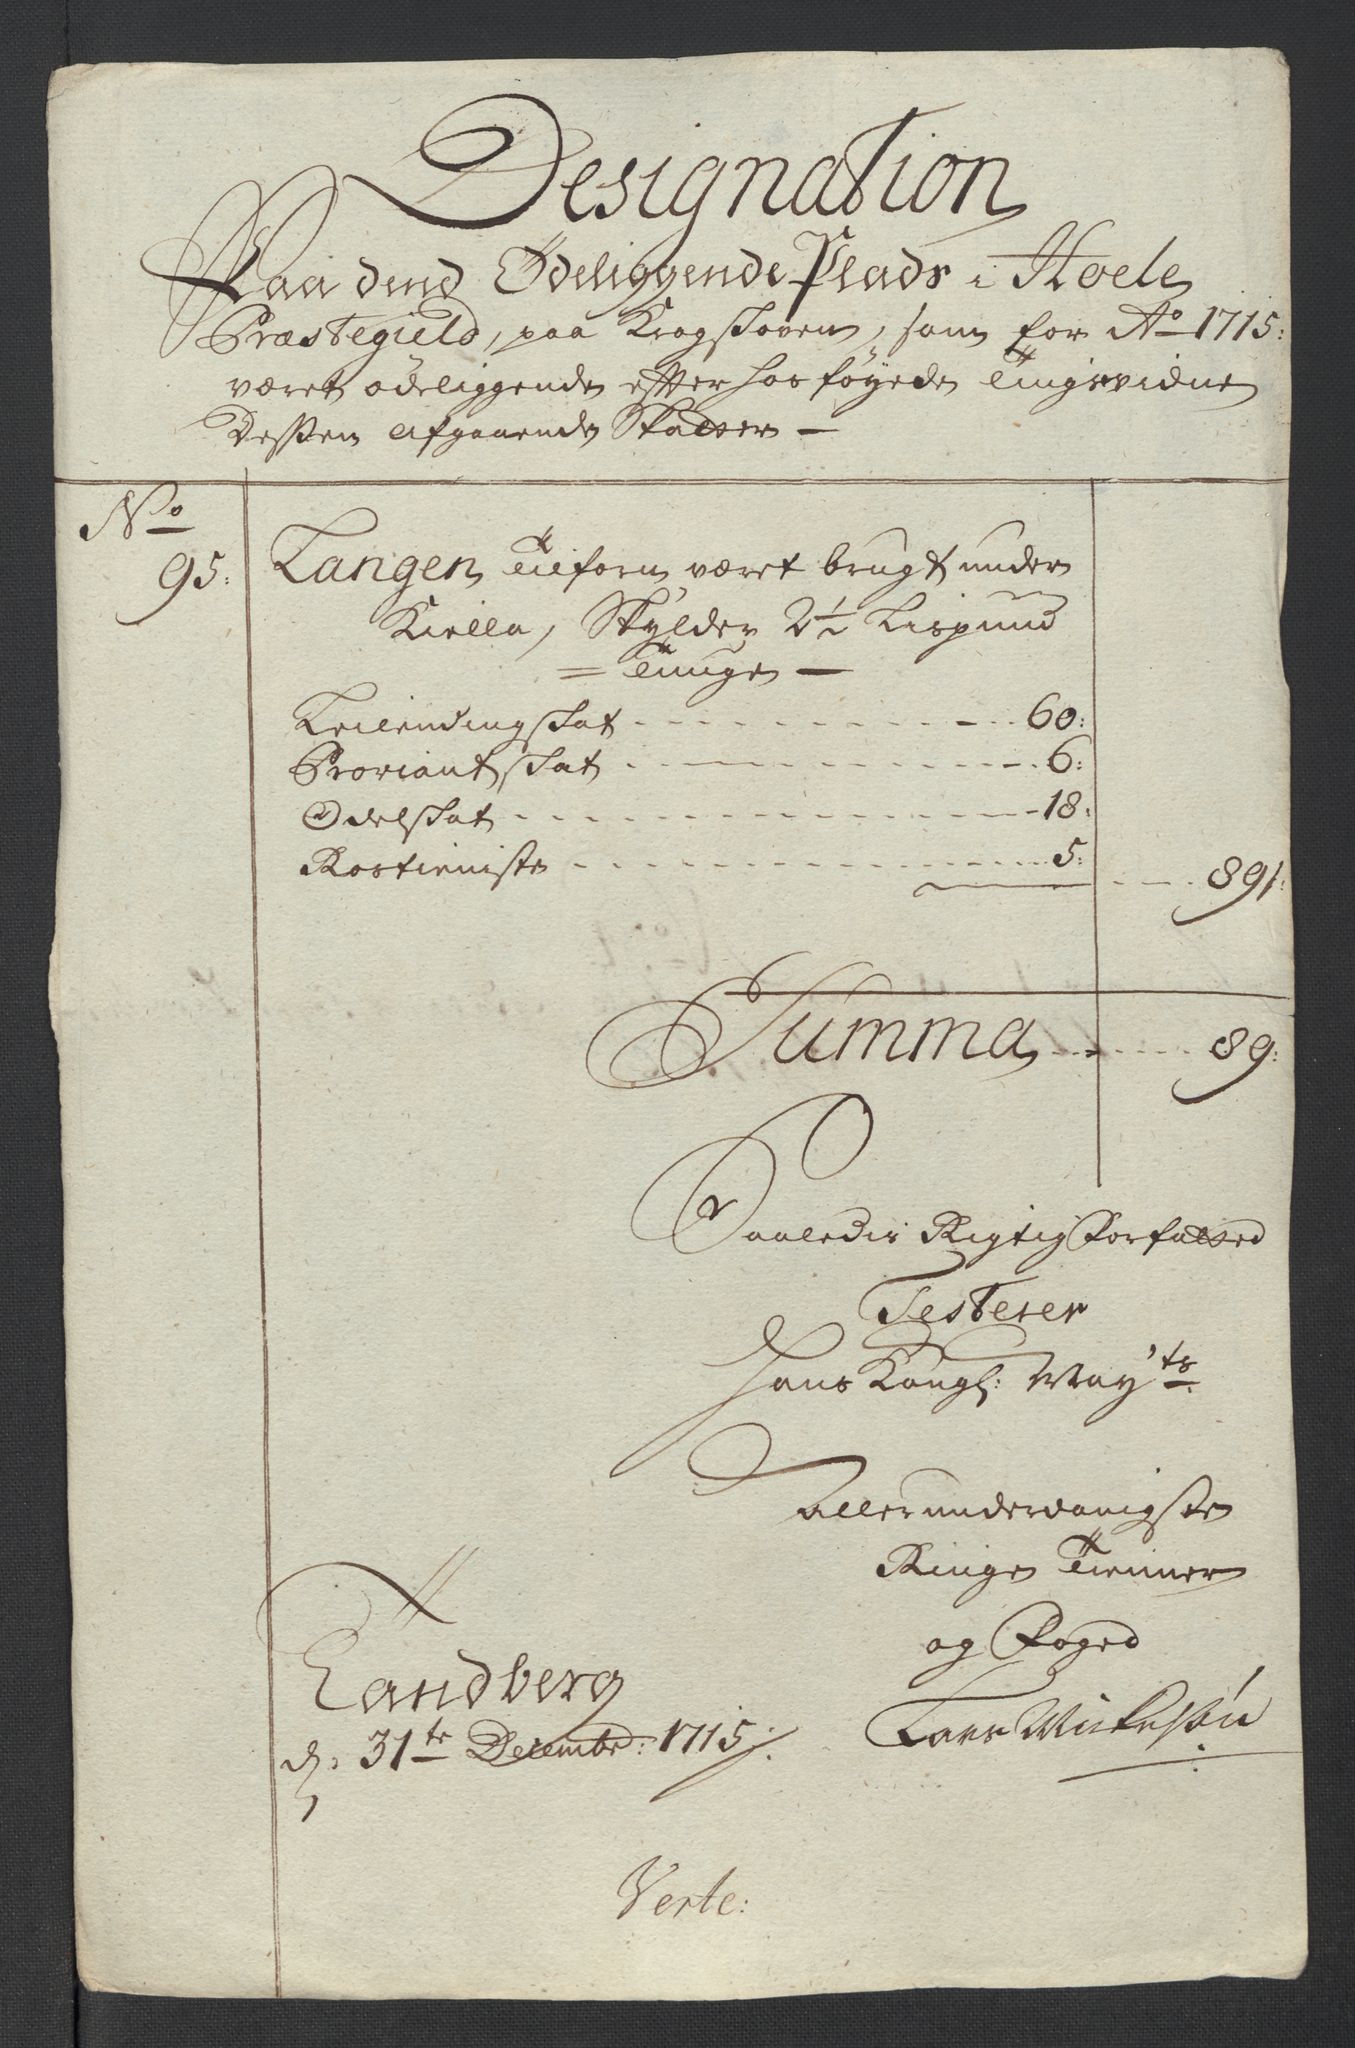 Designation
Paa dend Ødeliggende Plads i Hoele
Præstegield, paa Krogskoven, som for Ao 1715:
været ødeliggende effter hos føyede Tingsvidne
Dessen afgaaende Skatter —
No
95: Tangen Tilforn været brugt under
Kiella, Skylder 2½ Lispund
= Tunge —
Leilendingskat 60:
Proviantskat 6:
Odelskat 18:
Rostieniste 5: 89:
Summa 89:
Saaledis Rigtig Forfatted
Testerer
Hans Kongl: May'ts
Allerunderdanigste
Ringe Tienner
og Foged
Sandberg
d: 31te Decembr: 1715:
Verte: